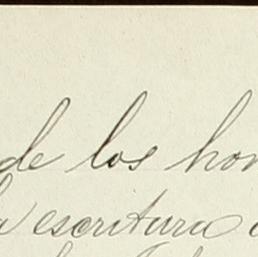 de los hom
la escritura